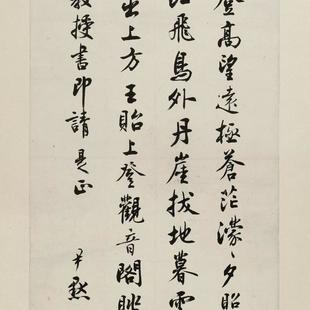 登高望遠極蒼茫濛々夕照
江飛鳥外丹崖拔地暮雲
出上方王貽上登觀音閣眺
教授書即請是正
尹默